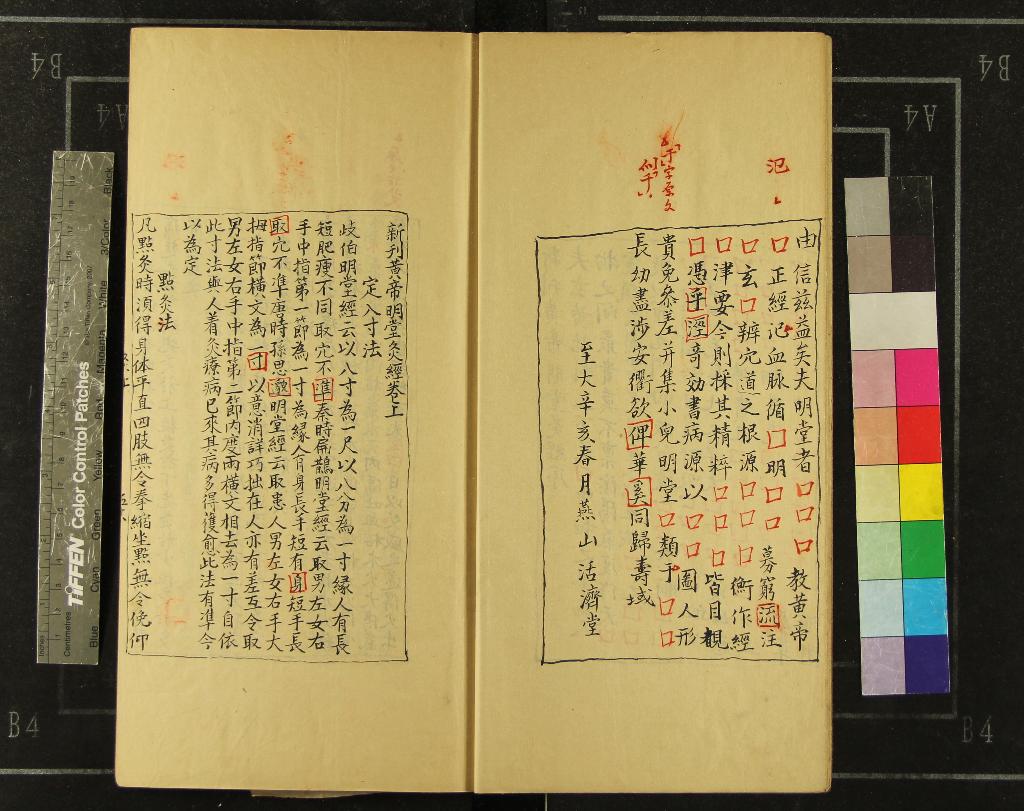 由信兹益矣夫明堂者□□□教黄帝
□正經氾血脉循□明□□募窮流注
□玄□辨穴道之根源□□□衡作經
□津要今則採其精粹□□□皆目觀
□憑乎溼奇効書病源以□□圖人形
貴免叅差并集小兒明堂□類于□□
長幼盡涉安衢欲俾華奚同歸壽域
至大辛亥春月燕山活濟堂
氾
于字原文
似千
新刊黄帝明堂灸經卷上
定八寸法
岐伯明堂經云以八寸為一尺以八分為一寸縁人有長
短肥瘦不同取穴不準秦時扁鵲明堂經云取男左女右
手中指第一節為一寸為縁人有身長手短有身短手長
取穴不準唐時孫思邈明堂經云取患人男左女右手大
拇指節橫文為一寸以意消詳巧拙在人亦有差互令取
男左女右手中指第二節内度兩橫文相去為一寸自依
此寸法與人着灸療病已來其病多得獲愈此法有準今
以為定
點灸法
凡點灸時湏得身体平直四肢無令拳縮坐點無令俛仰
B4
A4
B4
A4
B4
B4
TIFFEN Color Control Patches
Blue
Cyan
Green
Yellow
Red
Magenta
White
3/Color
Black
Centimetres
Inches